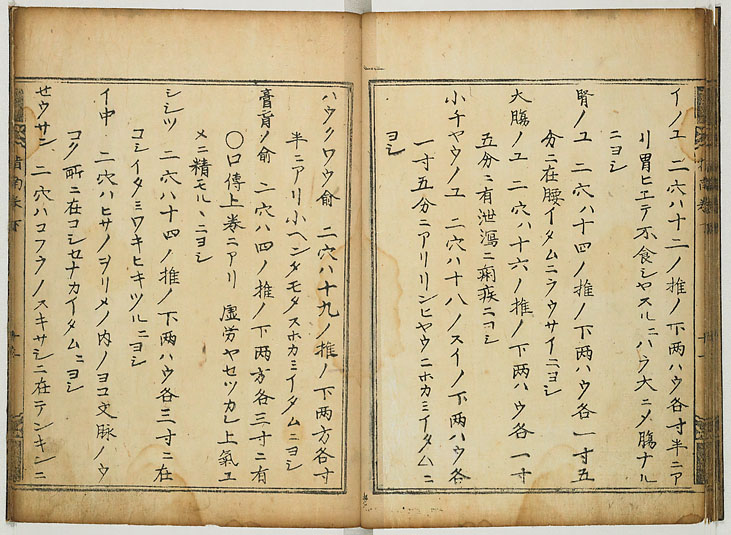 イノユ 二穴ハ十二ノ推ノ下两ハウ各寸半ニア
リ胃ヒヱテ不食シヤスルニハラ大ニメ膓ナル
ニヨシ
腎ノユ 二穴ハ十四ノ推ノ下两ハウ各一寸五
分ニ在腰イタムニラウサイニヨシ
大膓ノユ 二穴ハ十六ノ推ノ下两ハウ各一寸
五分ニ有泄瀉ニ痢疾ニヨシ
小チヤウノユ 二穴ハ十八ノスイノ下两ハウ各
一寸五分ニアリリンヒヤウニホカミイタムニ
ヨシ
ハウクワウ俞 二穴ハ十九ノ推ノ下两方各寸
半ニアリ小ヘンタモタスホカミイタムニヨシ
膏肓ノ俞 二穴ハ四ノ推ノ下两方各三寸ニ有
〇口傳上卷ニアリ 虚労ヤセツカレ上氣ユ
メニ精モルヽニヨシ
シシツ 二穴ハ十四ノ推ノ下两ハウ各三寸ニ在
コシイタミワキヒキツルニヨシ
イ中 二穴ハヒサノヲリメノ内ノヨコ文脉ノウ
コク所ニ在コシセナカイタムニヨシ
せウサン 二穴ハコフラノスキサシニ在テンキンニ
指南卷下